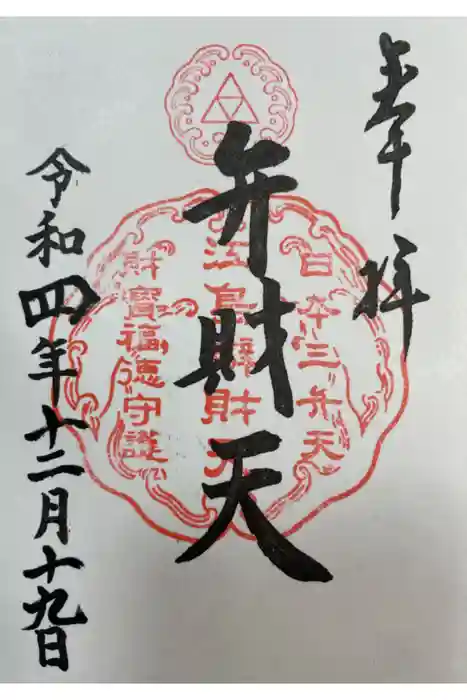 奉拝
日本三弁天
弁財天
江島辨財天
財寶福徳守護
令和四年十二月十九日